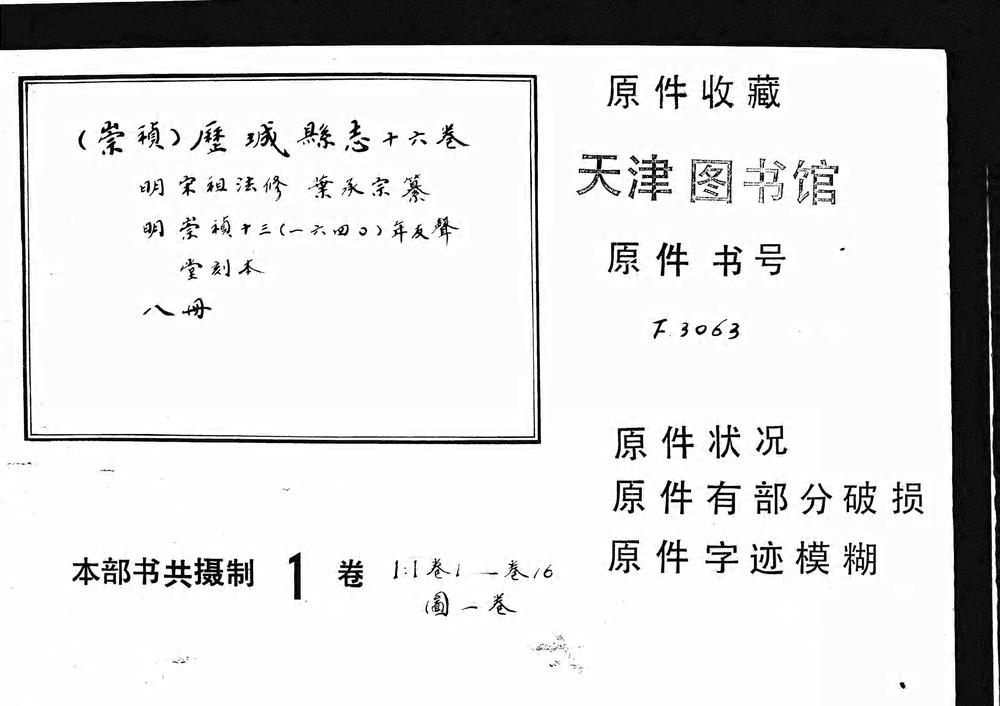 (崇禎)歷城縣志十六卷
明 宋祖法修 葉承宗纂
明 崇禎十三(一六四〇)年友聲
堂刻本
八冊
原件收藏
天津图书馆
原件书号
F.3063
原件状况
原件有部分破损
原件字迹模糊
本部书共摄制 1 卷 1:1卷1—卷16
圖一卷